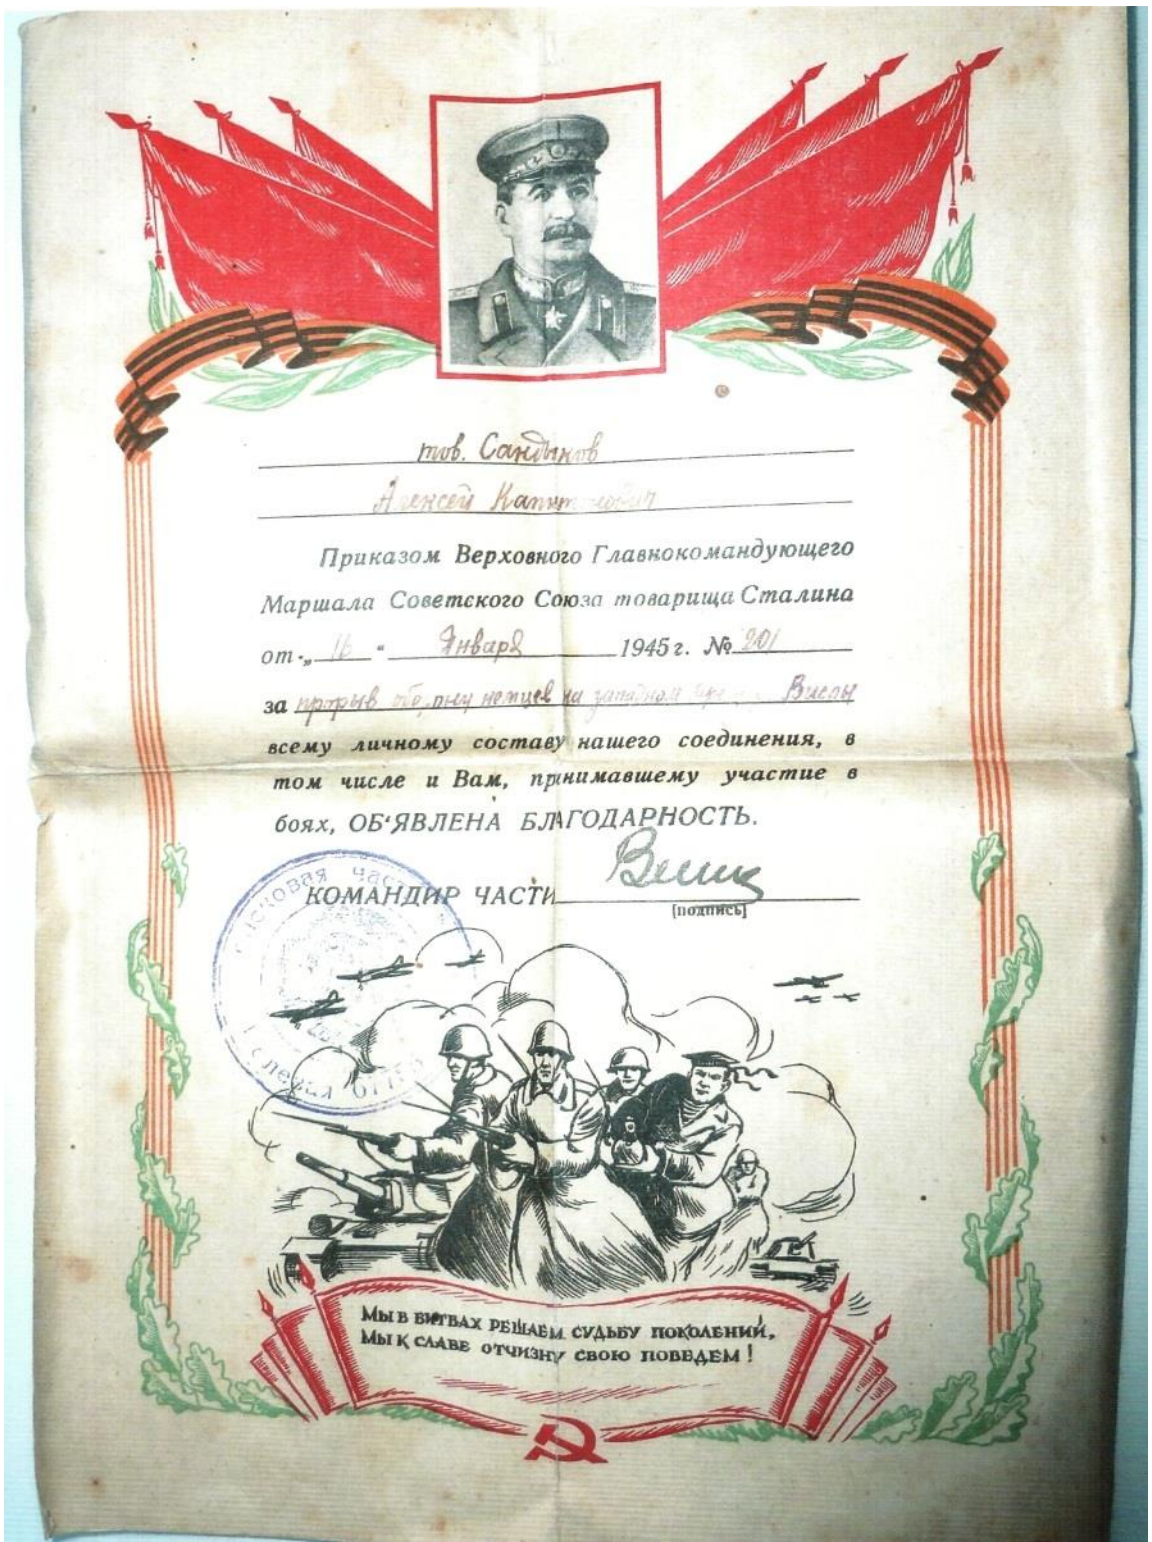 тов. Сандыков
Алексей
Приказом Верховного Главнокомандующего
Маршала Советского Союза товарища Сталина
от „16“ Января 1945 г. № 201
за прорыв обороны немцев на западном Вислы
всему личному составу нашего соединения, в
том числе и Вам, принимавшему участие в
боях, ОБ'ЯВЛЕНА БЛАГОДАРНОСТЬ.
КОМАНДИР ЧАСТИ
[подпись]
Полевая
Мы в битвах решаем судьбу поколений,
Мы к славе отчизну свою поведем!